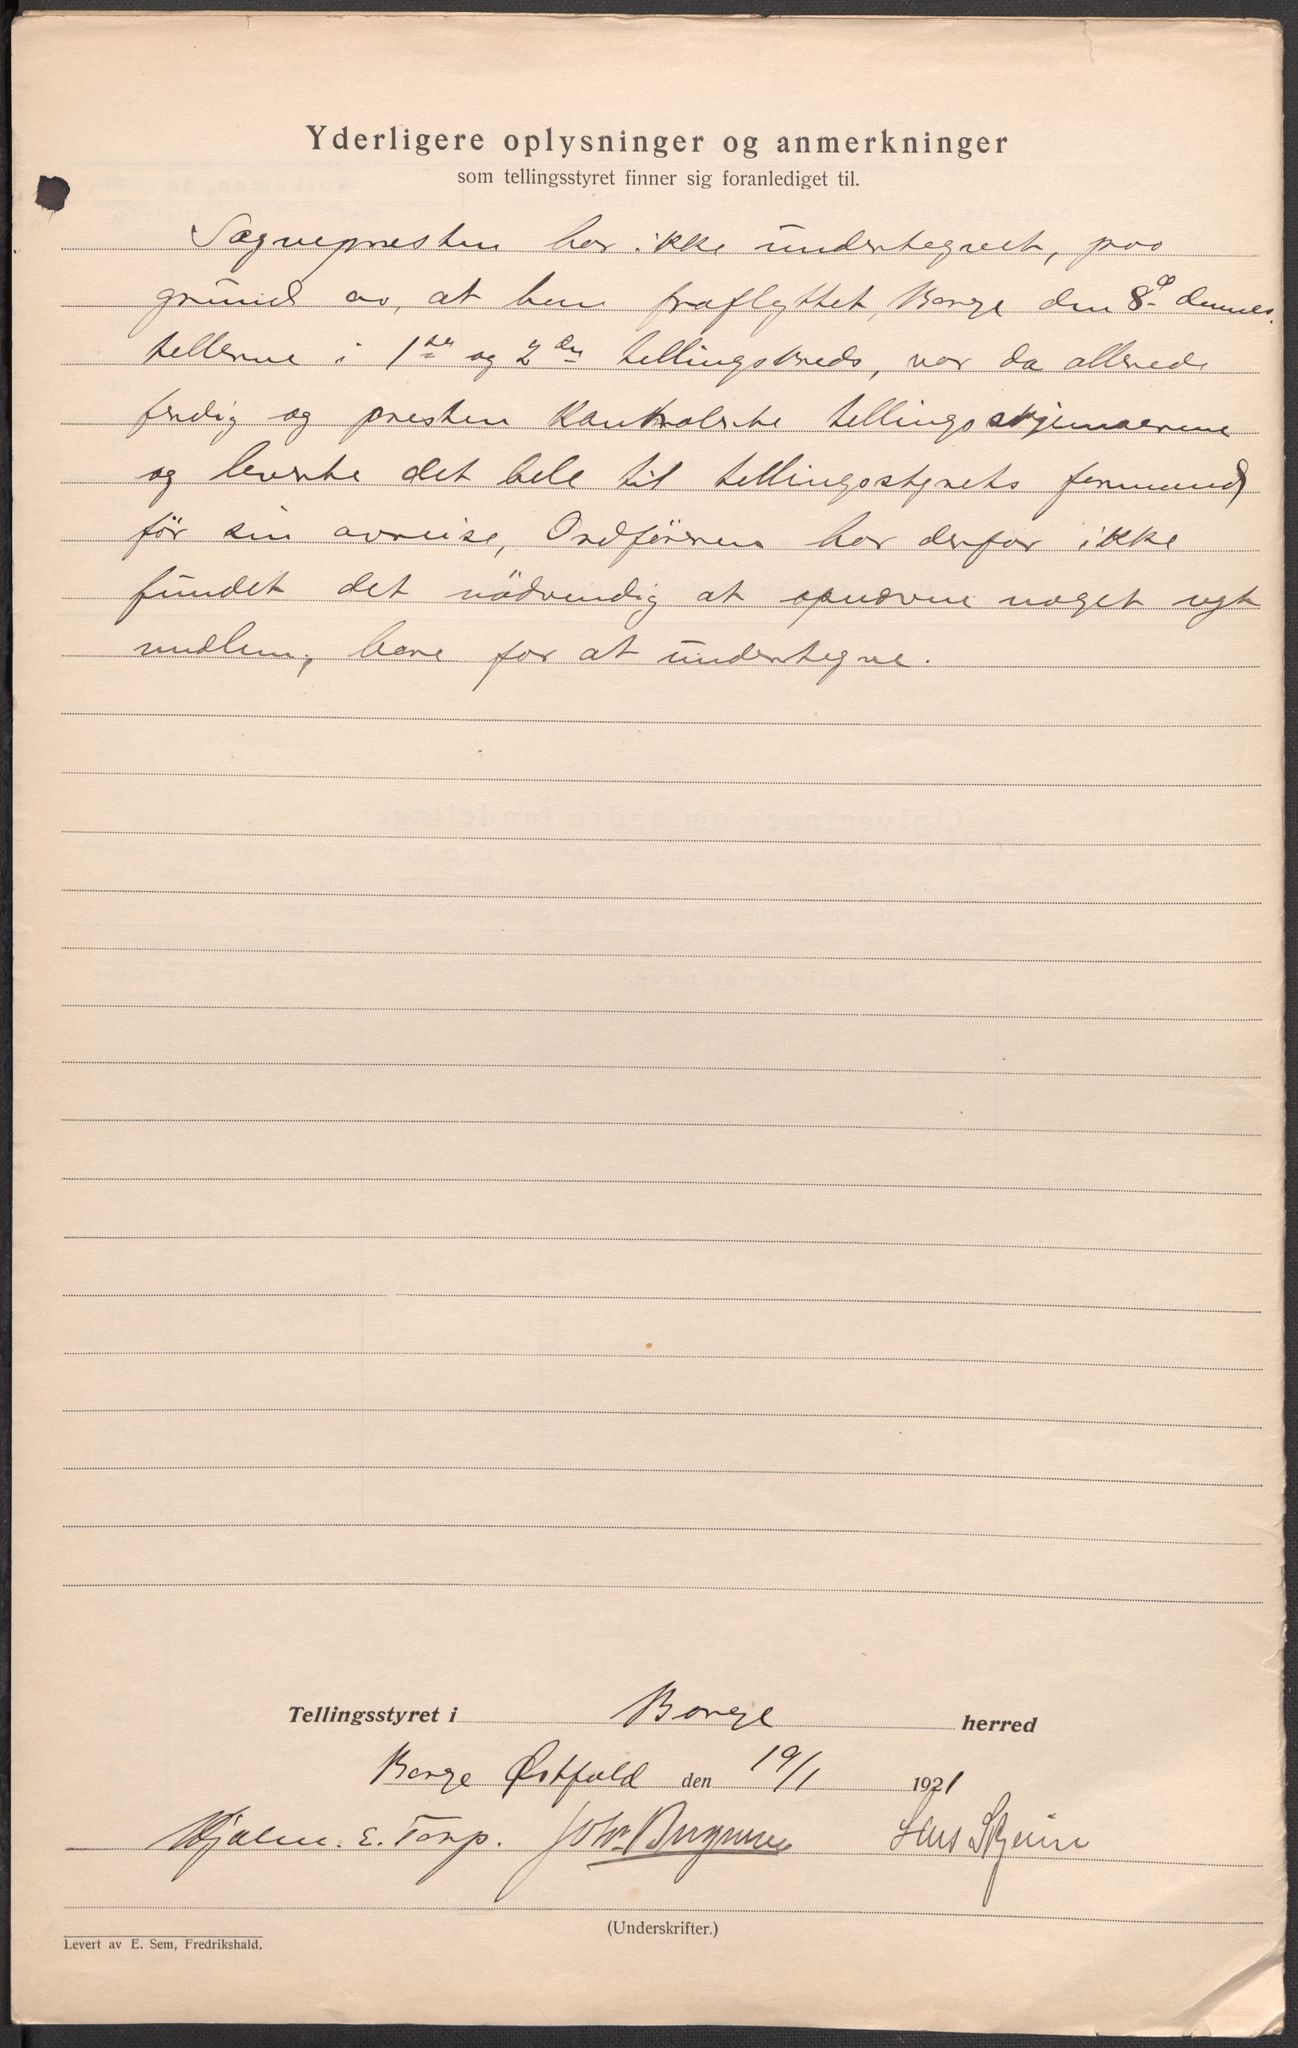 Yderligere oplysninger og anmerkninger
som tellingsstyret finner sig foranlediget til.
Sognepresten har ikke undertegnet, paa
grund av, at han fraflyttet, Borge den 8de dennes.
tellerne i 1ste og 2den tellingskreds, var da allerede
ferdig og presten kontrolerte tellingsskjemaerne
og leverte det hele til tellingsstyrets formand
før sin avreise, Ordføreren har derfor ikke
fundet det nödvendig at opnævne noget nyt
medlem, bare for at undertegne.
Tellingsstyret i Borge herred
Borge Østfold den 19/1 1921
Hjalm. E. Torp. Joh Hans Skjeim
(Underskrifter.)
Levert av E. Sem, Fredrikshald.